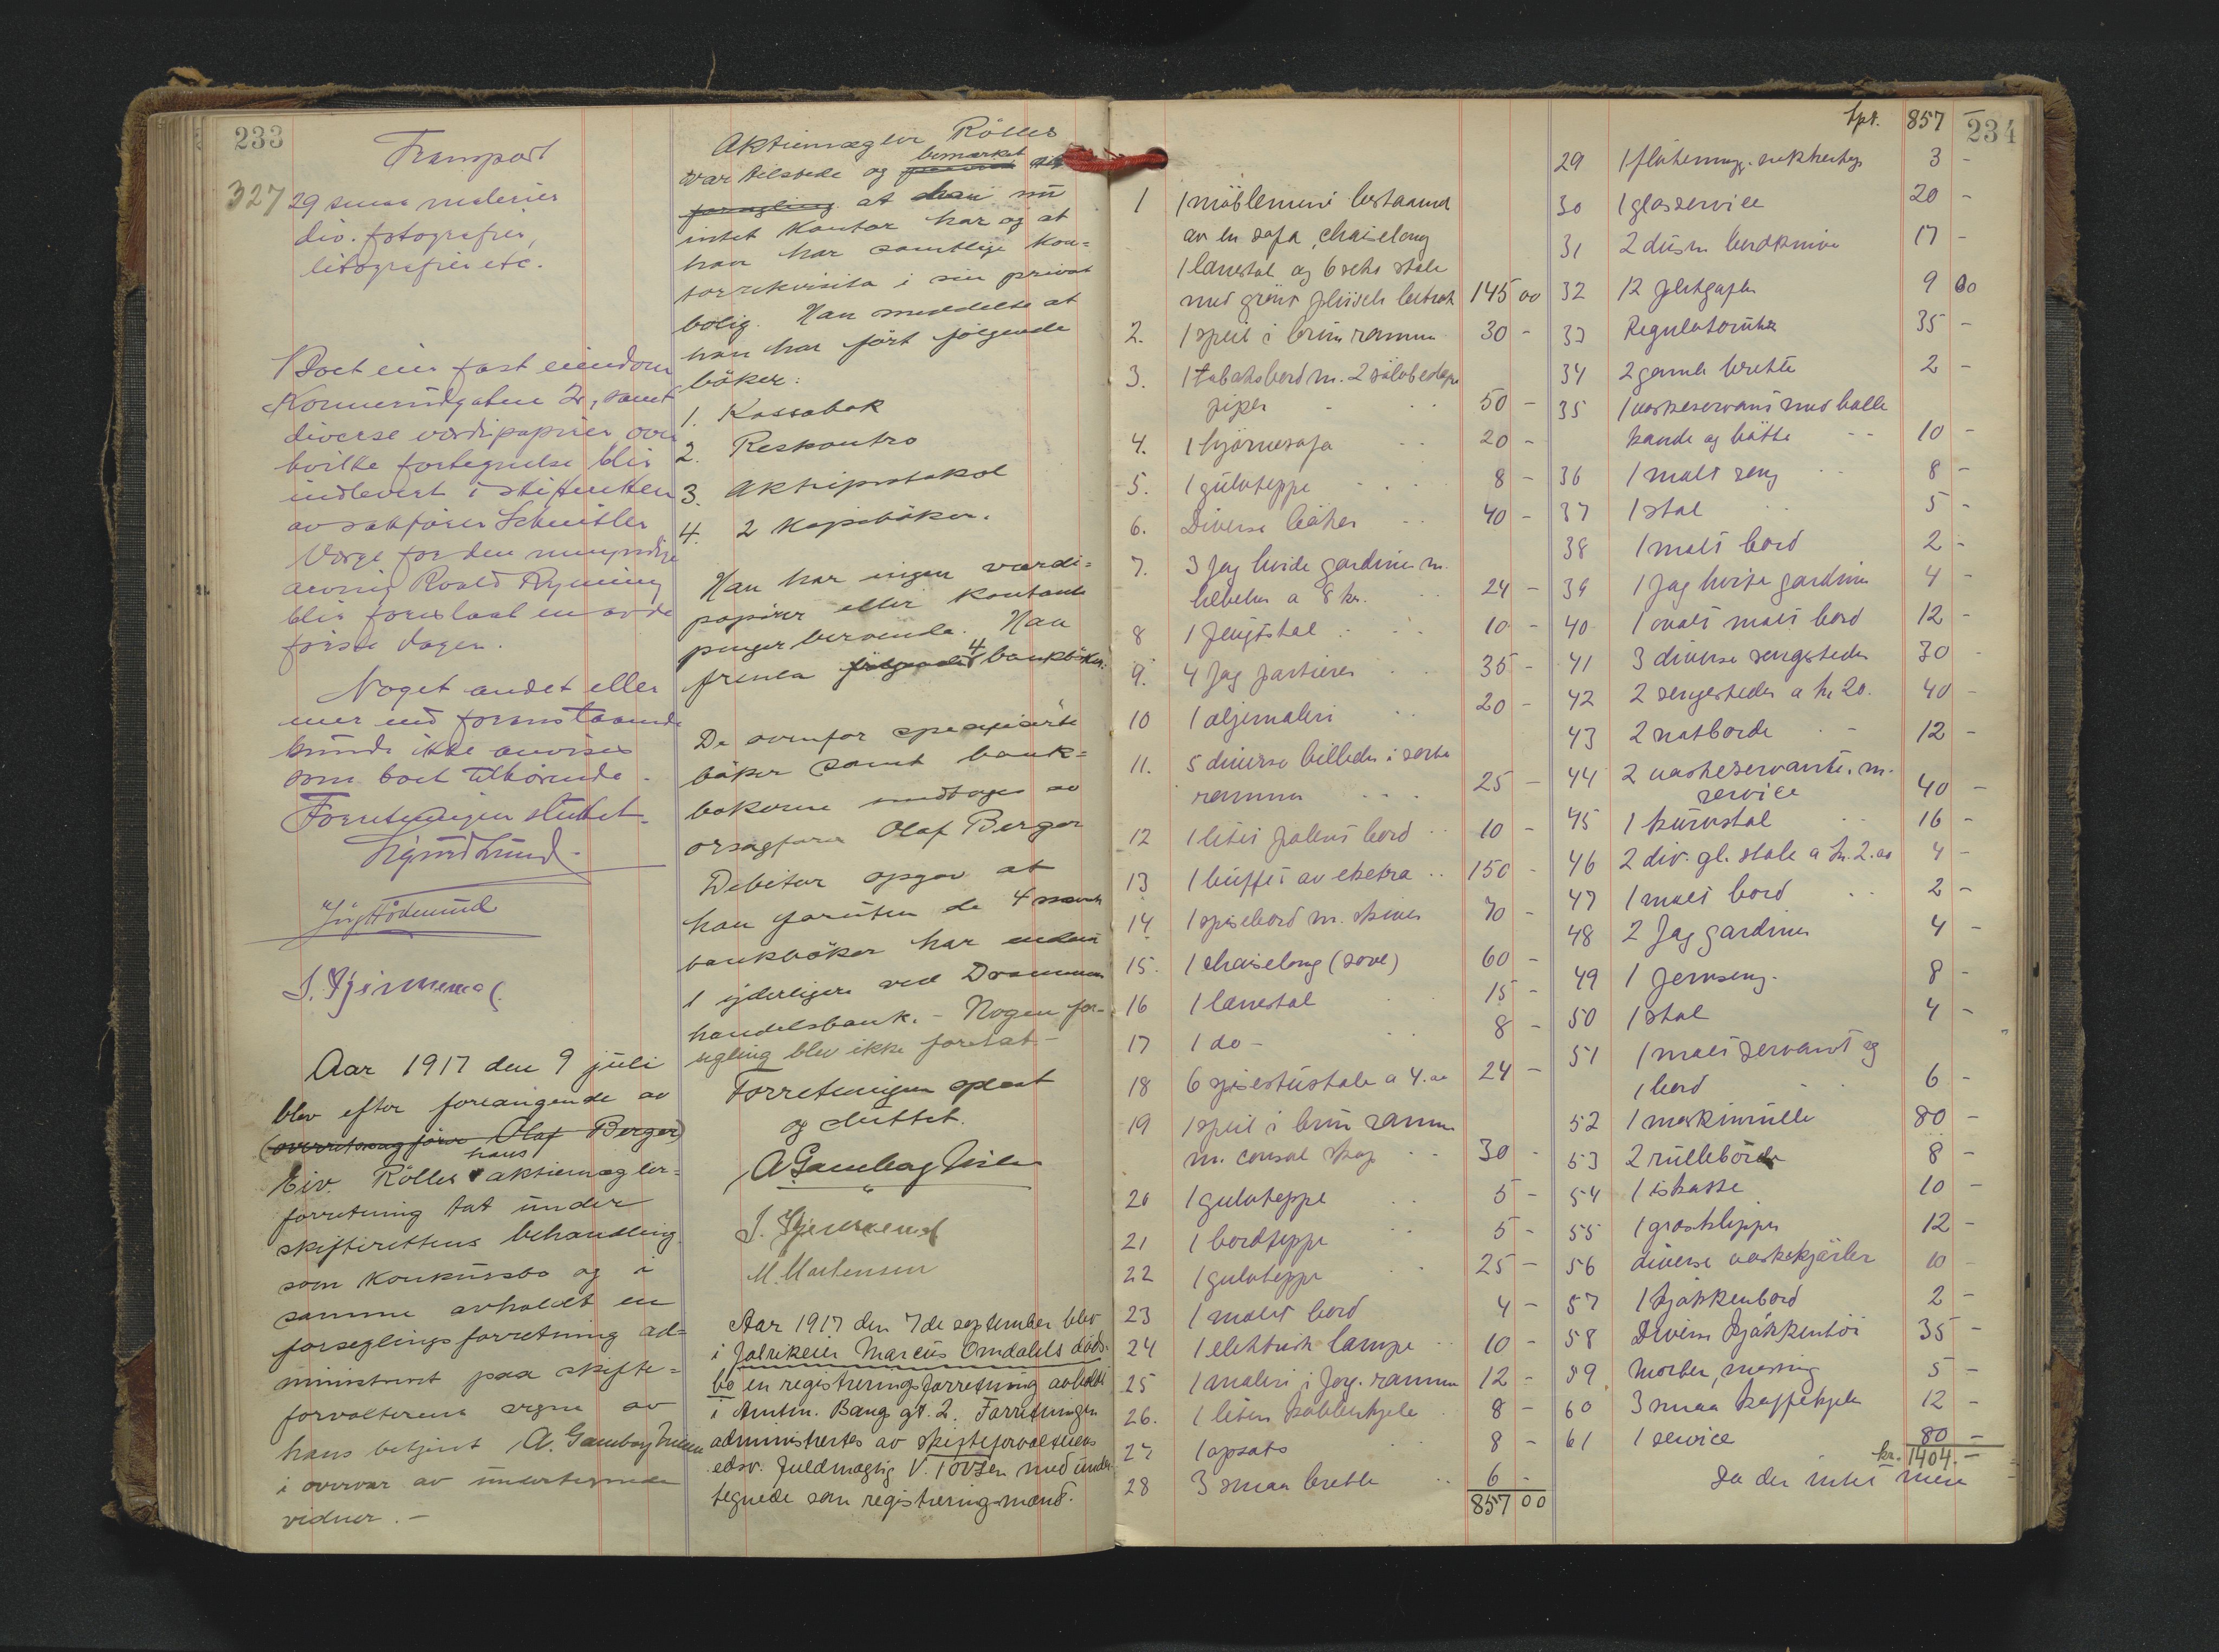 233
Transport
327 29 smaa malerier
div. fotografier,
litografier etc.
Boet eier fast eiendom
Konnerudgaten 2, samt
diverse værdipapirer over
hvilke fortegnelse blir
indlevert i skifteretten
av sakfører Schnitler
Værge for den umyndige
arving Roald Ryming
blir foreslaat en av de
første dager.
Noget andet eller
mer end foranstaaende
kunde ikke anvises
som boet tilhørende.
Forretningen sluttet.
Sigurd Lund
Aar 1917 den 9 juli
blev efter foreangende av
(overretssagfører Olaf Berger)
Eiv. Rölles hans aktiemægler=
forretning tat under
skifterettens behandling
som konkursbo og i
samme avholdt en
forseglingsforretning ad=
ministrert paa skifte=
forvalterens vegne av
hans betjent A. Gamborg Nilsen
i overvær av undertegnede
vidner. –
Aktiemægler Rölles
var tilstede og bemærket
forsegling at han nu
intet kontor har og at
han har samtlige kon=
torrekvisita i sin privat
bolig. Han meddelte at
han har ført følgende
bøker:
1. Kassabok
2. Reskontro
3. Aktieprotokol
4. 2 Kopibøker.
Han har ingen værdi=
papirer eller kontante
penger beroende. Han
frenla følgende 4 bankbøker:
De ovenfor specificerte
bøker samt bank=
bøkerne mottages av
orsagfører Olaf Berger
Debitor opgav at
han foruten de 4 nævnte
bankbøker har endnu
1 yderligere ved Drammens
handelsbank. – Nogen for-
segling blev ikke foretat –
Forretningen oplæst
og sluttet.
A. Gamborg Nilsen
M. Martensen
Aar 1917 den 7de september blev
i fabrikeier Marcus Omdahls døds-
bo en registreringsforretning avholdt
i Amtm. Bang gt. 2. Forretningen
administrertes av skifteforvalterens
edsv. fuldmægtig V. Iövsen med under-
tegnede som registreringsmænd.
1 1 møblement bestaaende
av en sofa, chaiselong
1 lænestol og 6 seks stole
med grønt plüsch betræk 145 00
2. 1 speil i brun ramme 30 –
3. 1 tobaksbord m. 2 sølvbeslagne
piper 50 –
4. 1 hjørnesofa 20 –
5. 1 gulvteppe 8 –
6. Diverse bøker 40 –
7. 3 fag hvide gardiner m.
tilbehør a 8 kr. 24 –
8 1 fløitstol 10 –
9. 4 fag portierer 35 –
10 1 oljemaleri 20 –
11. 5 diverse billeder i sorte
rammer 25 –
12 1 litet polert bord 10 –
13 1 buffet av eketræ 150 –
14 1 spisebord m. skiver 70 –
15. 1 chaiselong (sove) 60 –
16 1 lænestol 15 –
17 1 do – 8 –
18 6 spisestustole a 4.00 24 –
19 1 speil i brun ramme
m. consol skap 30 –
20 1 gulvteppe 5 –
21 1 bordteppe 5 –
22 1 gulvteppe 25 –
23 1 malet bord 4 –
24 1 elektrisk lampe 10 –
25 1 maleri i forg. ramme 12 –
26. 1 liten kobberkjele 8 –
27 1 opsats 8 –
28 3 smaa brette 6 –
857 00
234
Tpt. 857 –
29 1 fløtemugge, sukkerkop 3 –
30 1 glasservice 20 –
31 2 dusin bordkniver 17 –
32 12 pletgafler 9 00
33 Regulatoruhr 35 –
34 2 gamle brette 2 –
35 1 vaskeservant med balle
kande og bøtte 10 –
36 1 malt seng 8 –
37 1 stol 5 –
38 1 malt bord 2 –
39 1 fag hvite gardiner 4 –
40 1 ovalt malt bord 12 –
41 3 diverse sengesteder 30 –
42 2 sengesteder a kr 20. 40 –
43 2 natborde 12 –
44 2 vaskeservanter m.
service 40 –
45 1 kurvstol 16 –
46 2 div. gl. stole a kr. 2.00 4 –
47 1 malt bord 2 –
48 2 fag gardiner 4 –
49 1 jernseng. 8 –
50 1 stol 4 –
51 1 malt servant og
1 bord 6 –
52 1 maskinrulle 80 –
53 2 rullebörde 8 –
54 1 iskasse 10 –
55 1 græsklipper 12 –
56 diverse vaskekjørler 10 –
57 1 kjøkkenbord 2 –
58 Diverse kjøkkentøi 35 –
59 Morter, messing 5 –
60 3 smaa kaffekjeler 12 –
61 1 service 80 –
kr. 1404. –
Da der intet mere